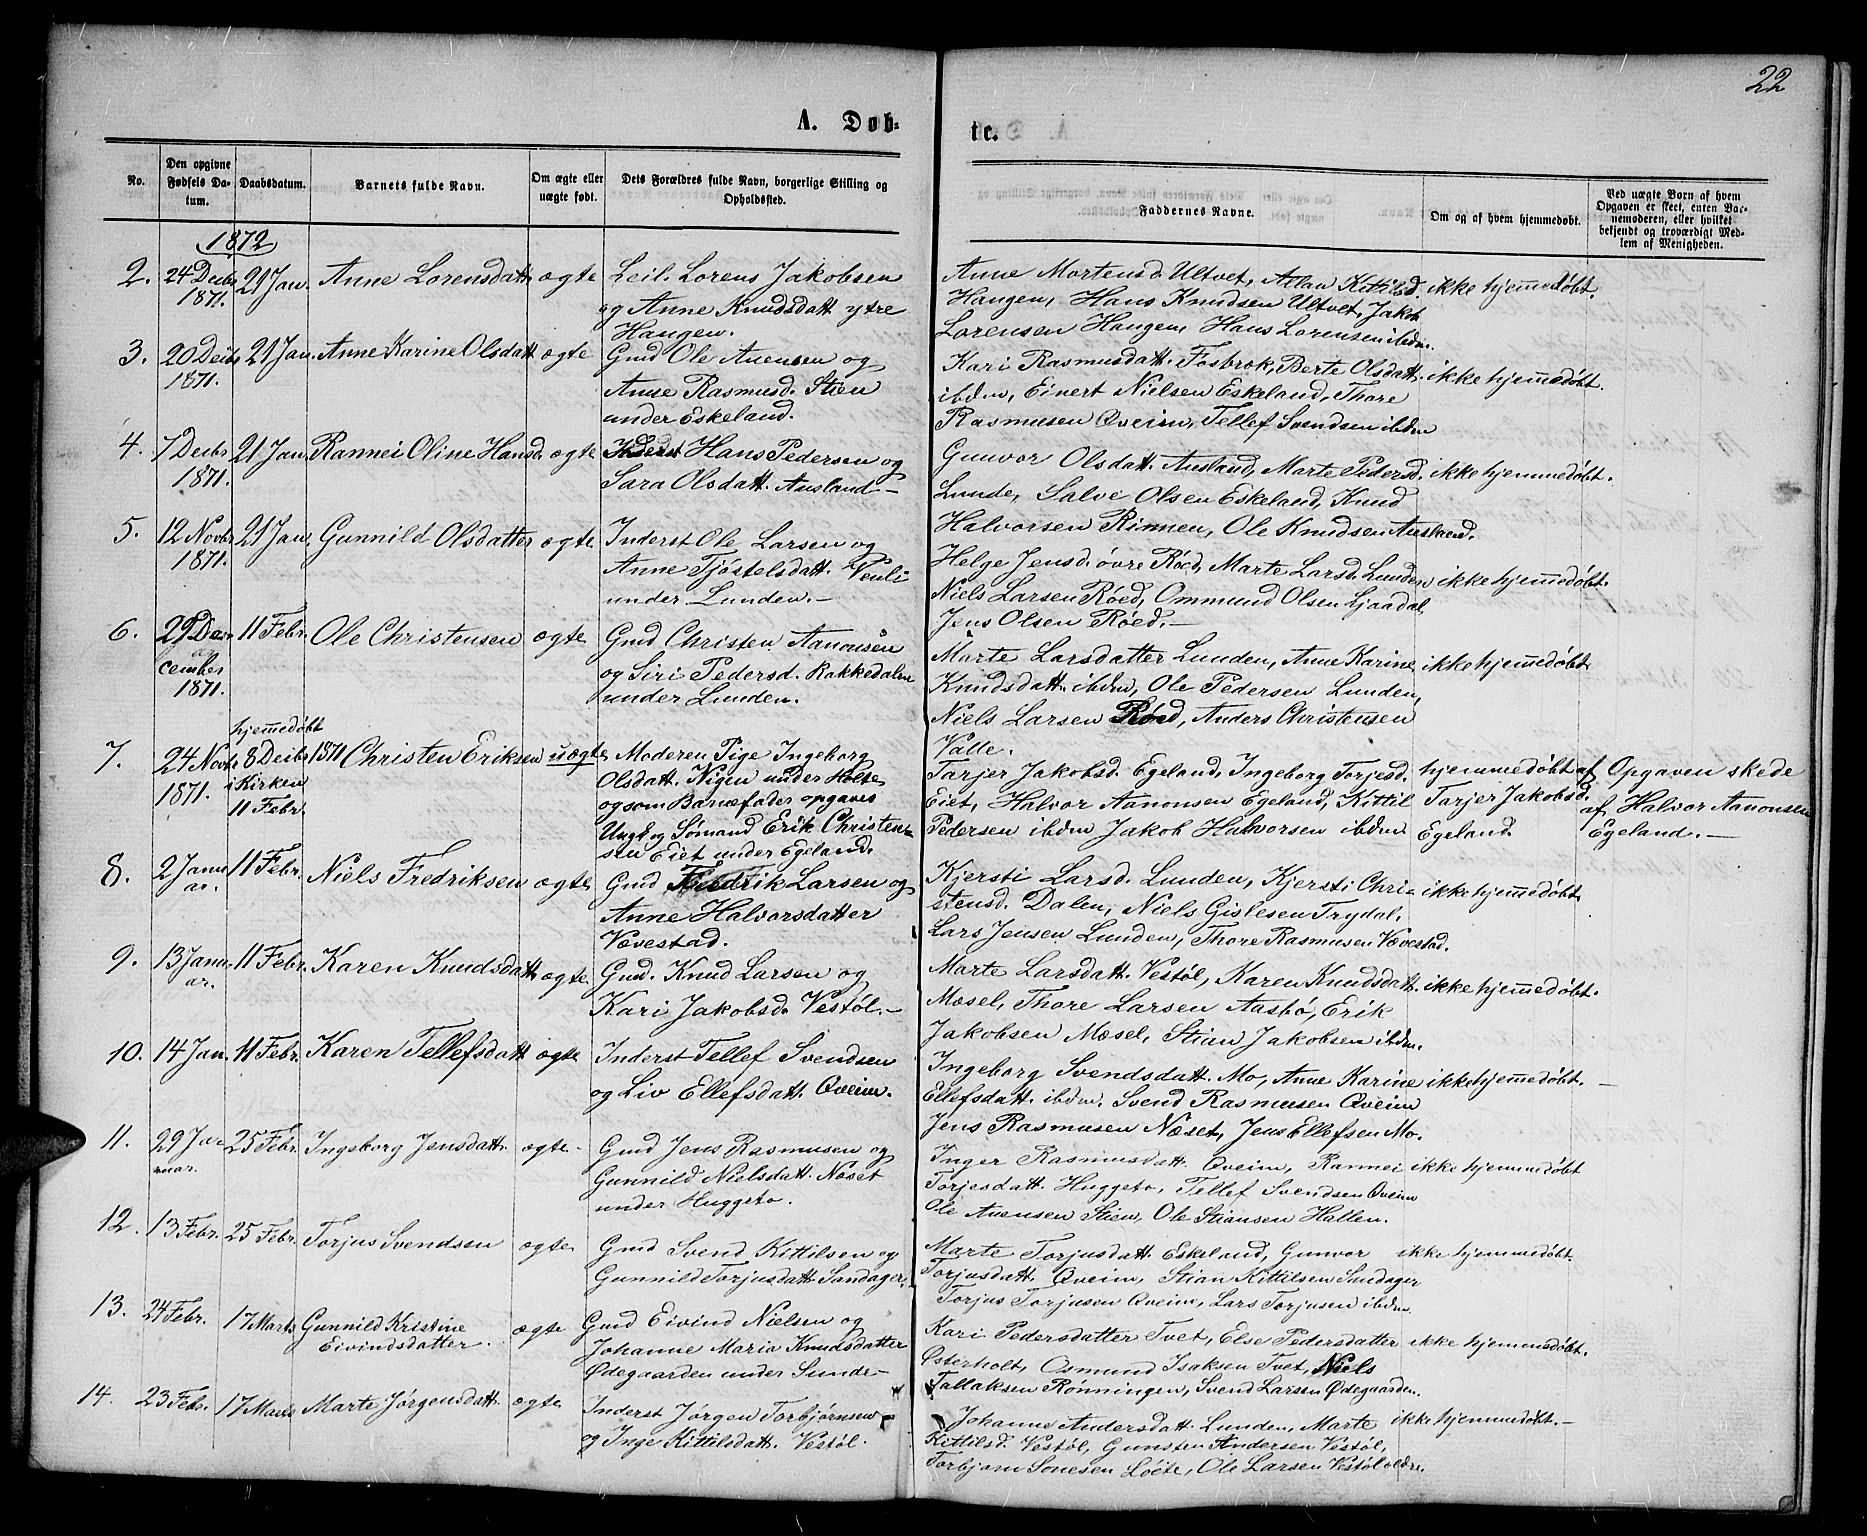 22
A. Døbte.
No.
Den opgivne Fødsels Datum.
Daabsdatum.
Barnets fulde Navn.
Om ægte eller uægte født.
Dets Forældres fulde Navn, borgerlige Stilling og Opholdssted.
Faddernes Navne.
Om og af hvem hjemmedøbt.
Ved uægte Børn af hvem Opgaven er skeet, enten Barnemoderen, eller hvilket bekjendt og troværdigt Medlem af Menigheden.
1872
2. 24 Decbr 1871. 21 Jan. Anne Lorensdatt. ægte
Leil. Lorens Jakobsen
og Anne Knudsdatt. ytre
Haugen.
Anne Mortensd. Ultvet, Aslau Kittilsd.
Haugen, Hans Knudsen Ultvet, Jakob
Lorensen Haugen, Hans Lorensen ibdm.
ikke hjemmedøbt.
3. 20 Decbr 1871. 21 Jan. Anne Karine Olsdatt. ægte
Gmd Ole Auensen og
Anne Rasmusd. Stien
under Eskeland.
Kari Rasmusdatt. Fosbrok, Berte Olsdatt.
ibdm, Einert Nielsen Eskeland, Thore
Rasmusen Øveim, Tellef Svendsen ibdm
ikke hjemmedøbt.
4. 7 Decbr 1871. 21 Jan. Rannei Oline Hansd. ægte
Inderst Hans Pedersen og
Sara Olsdatt. Ausland.-
Gunvor Olsdatt. Ausland, Marte Pedersd.
Lunde, Salve Olsen Eskeland, Knud
Halvorsen Rinnen, Ole Knudsen Ausland.
ikke hjemmedøbt.
5. 12 Novbr 1871. 21 Jan. Gunnild Olsdatter ægte
Inderst Ole Larsen og
Anne Tjöstelsdatt. Venli
under Lunden.-
Helge Jensd. övre Röed, Marte Larsd. Lunden
Niels Larsen Röed, Ommund Olsen Ljaadal,
Jens Olsen Röed.-
ikke hjemmedøbt.
6. 29 December 1871. 11 Febr. Ole Christensen ægte
Gmd Christen Aanonsen
og Siri Pedersd. Rakkedalen
under Lunden.
Marte Larsdatter Lunden, Anne Karine
Knudsdatt. ibdm, Ole Pedersen Lunden,
Niels Larsen Röed, Anders Christensen
Valle.
ikke hjemmedøbt
7. 24 Novbr 1871. hjemmedøbt 8 Decbr 1871 i Kirken 11 Febr. Christen Eriksen uægte
Moderen Pige Ingeborg
Olsdatt. Nigen under Holte
og som Barnefader opgaves
Ungk. og Sømand Erik Christen-
sen Eiet under Egeland.
Tarjer Jakobsd. Egeland, Ingeborg Torjesd.
Eiet, Halvor Aanonsen Egeland, Kittil
Pedersen ibdm Jakob Halvorsen ibdm
hjemmedøbt af
Tarjer Jakobsd.
Egeland.
Opgaven skede
af Halvor Aanonsen
Egeland.-
8. 2 Januar. 11 Febr. Niels Fredriksen ægte
Gmd Fredrik Larsen og
Anne Halvorsdatter
Vævestad.
Kjersti Larsd. Lunden, Kjersti Chri-
stensd. Dalen, Niels Gislesen Trydal,
Lars Jensen Lunden, Thore Rasmusen Vævestad.
ikke hjemmedøbt
9. 13 Januar. 11 Febr. Karen Knudsdatt. ægte
Gmd. Knud Larsen og
Kari Jakobsd. Vestöl.-
Marte Larsdatt. Vestöl, Karen Knudsdatt.
Mæsel, Thore Larsen Aasbö, Erik
Jakobsen Mæsel, Stian Jakobsen ibdm.
ikke hjemmedøbt.
10. 14 Jan. 11 Febr. Karen Tellefsdatt. ægte
Inderst Tellef Svendsen
og Liv Ellefsdatt. Øveim.
Ingeborg Svendsdatt. Mo, Anne Karine
Ellefsdatt. ibdm. Svend Rasmusen Øveim
Jens Rasmusen Næset, Jens Ellefsen Mo.
ikke hjemmedøbt.-
11. 29 Januar. 25 Febr. Ingeborg Jensdatt. ægte.
Gmd Jens Rasmusen og
Gunnild Nielsdatt. Næset
under Huggeto.
Inger Rasmusdatt. Øveim, Rannei
Torjesdatt. Huggeto, Tellef Svendsen Øveim
Ole Auensen Stien, Ole Stiansen Hallen.
ikke hjemmedøbt
12. 13 Febr. 25 Febr. Torjus Svendsen ægte
Gmd Svend Kittilsen og
Gunnild Torjusdatt. Sandager.
Marte Torjusdatt. Eskeland, Gunvor
Torjusdatt. Øveim, Stian Kittilsen Sandager
Torjus Torjusen Øveim, Lars Torjusen ibdm.
ikke hjemmedøbt.
13. 24 Febr. 17 Marts Gunnild Kristine
Eivindsdatter. ægte
Gmd Eivind Nielsen og
Johanne Maria Knudsdatter
Ødegaarden under Lunde-
Kari Pedersdatter Tvet, Else Pedersdatter
Østerholt, Osmund Isaksen Tvet, Niels
Tallaksen Rönningen, Svend Larsen Ødegaarden.
ikke hjemmedøbt.
14. 23 Febr. 17 Marts Marte Jørgensdatt. ægte
Inderst Jørgen Torbjørnsen
og Inge Kittilsdatt. Vestöl.
Johanne Andersdatt. Lunden, Marte
Kittilsd. Vestöl, Gunsten Andersen Vestöl,
Torbjørn Sonesen Löite, Ole Larsen Vestöl
ikke hjemmedøbt.-